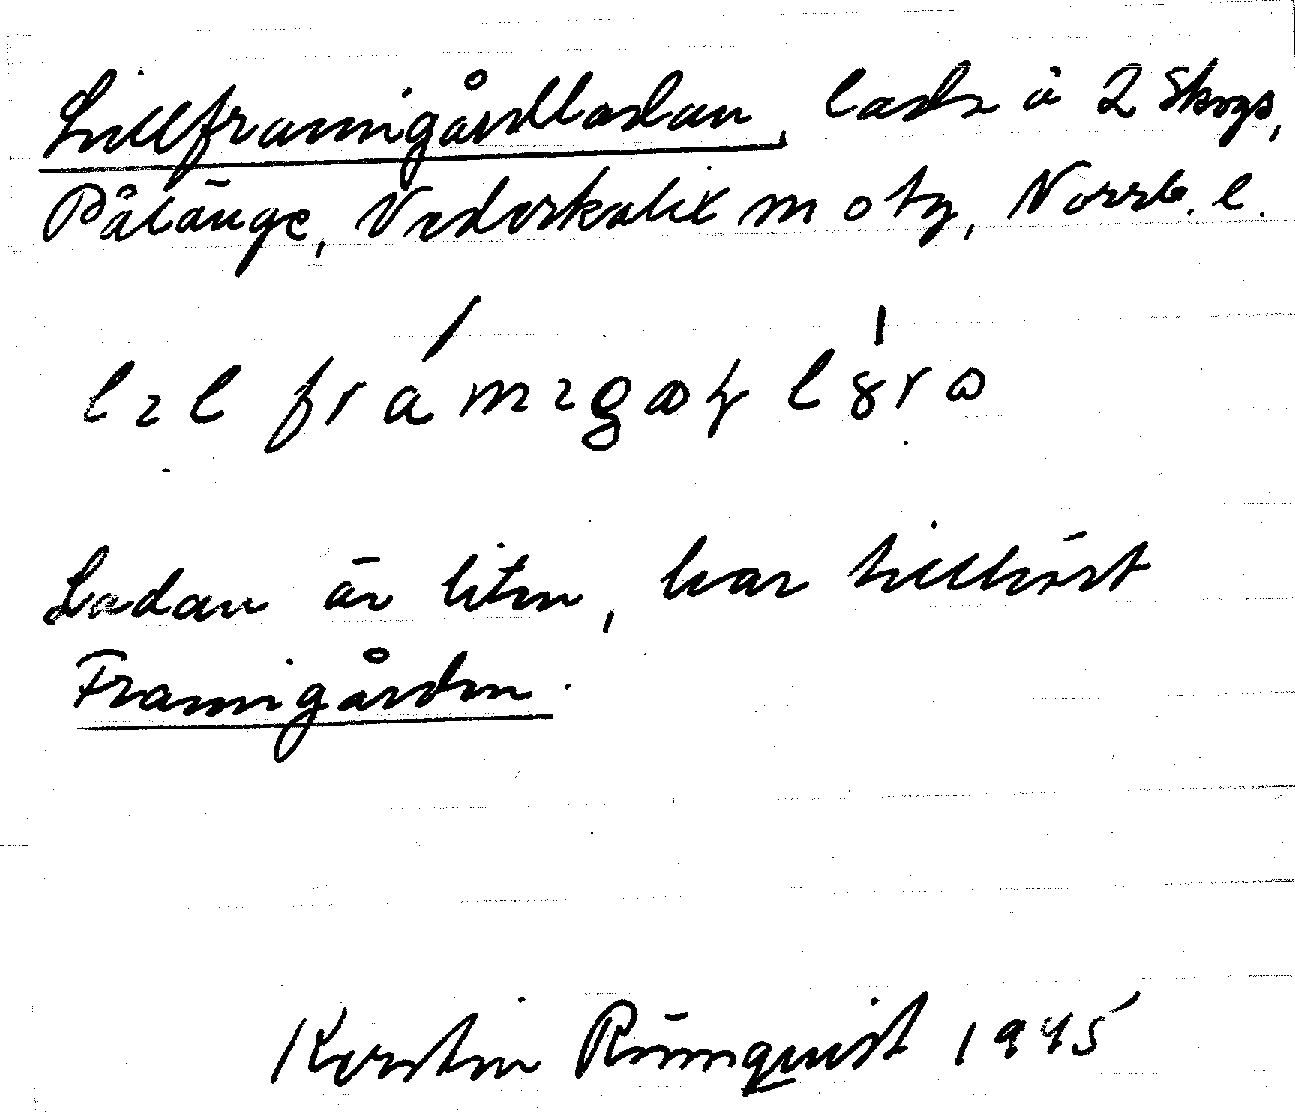 Lillframigårdladan, lada å 2 Skogs,
Pålänge, Nederkalix
Norrb. l.
Ladan är liten, har tillhört
Framigården.
Kerstin Rönnquist 1945